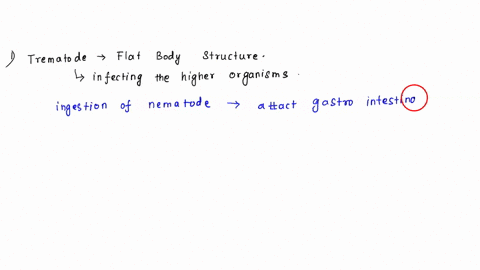 ) Trematode → Flat Body Structure.
↳ infecting the higher organisms.
ingestion of nematode → attact gastro intestino